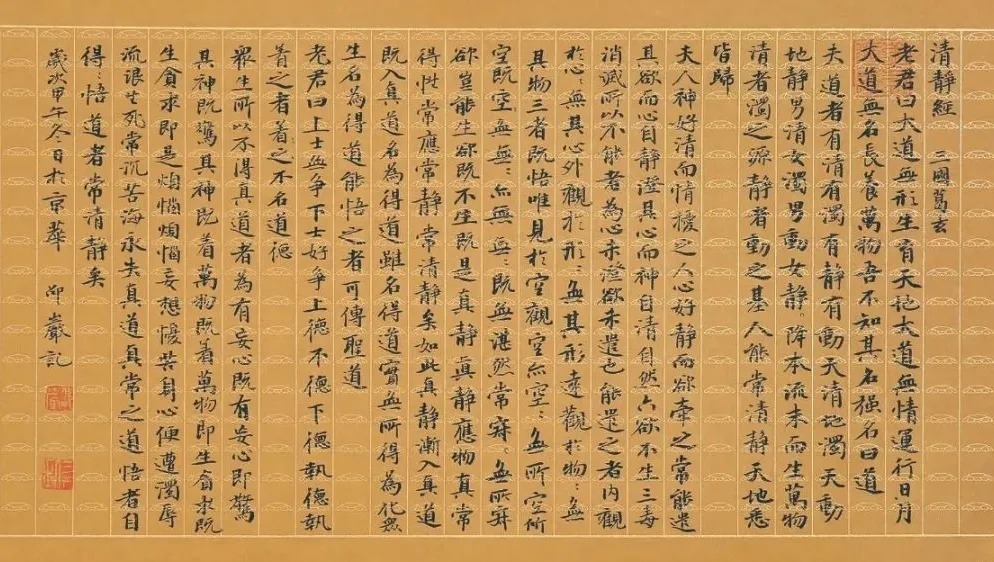 清静經 三國葛玄
老君曰大道無形生育天地大道無情運行日月
大道無名長養萬物吾不知其名强名曰道
夫道者有清有濁有静有動天清地濁天動
地静男清女濁男動女静。降本流末而生萬物
清者濁之源静者動之基人能常清静天地悉
皆歸
夫人神好清而情擾之人心好静而欲牽之常能遣
其欲而心自静澄其心而神自清自然六欲不生三毒
消滅所以不能者為心未澄欲未遣也能遣之者内觀
於心無其心外觀於形：無其形遠觀於物：無
其物三者既悟唯見於空觀空亦空：無所空所
空既空無無：亦無無：既無湛然常寂：無所寂
欲豈能生欲既不生既是真静真静應物真常
得性常應常静常清静矣如此真静漸入真道
既入真道名為得道雖名得道實無所得為化衆
生名為得道能悟之者可傳聖道
老君曰上士無争下士好争上德不德下德執德執
着之者着之不名道德
衆生所以不得真道者為有妄心既有妄心即驚
其神既驚其神既着萬物既着萬物即生貪求既
生貪求即是煩惱煩惱妄想憂苦身心便遭濁辱
流浪生死常沉苦海永失真道真常之道悟者自
得：悟道者常清静矣
歲次甲午冬日於京華 巖記